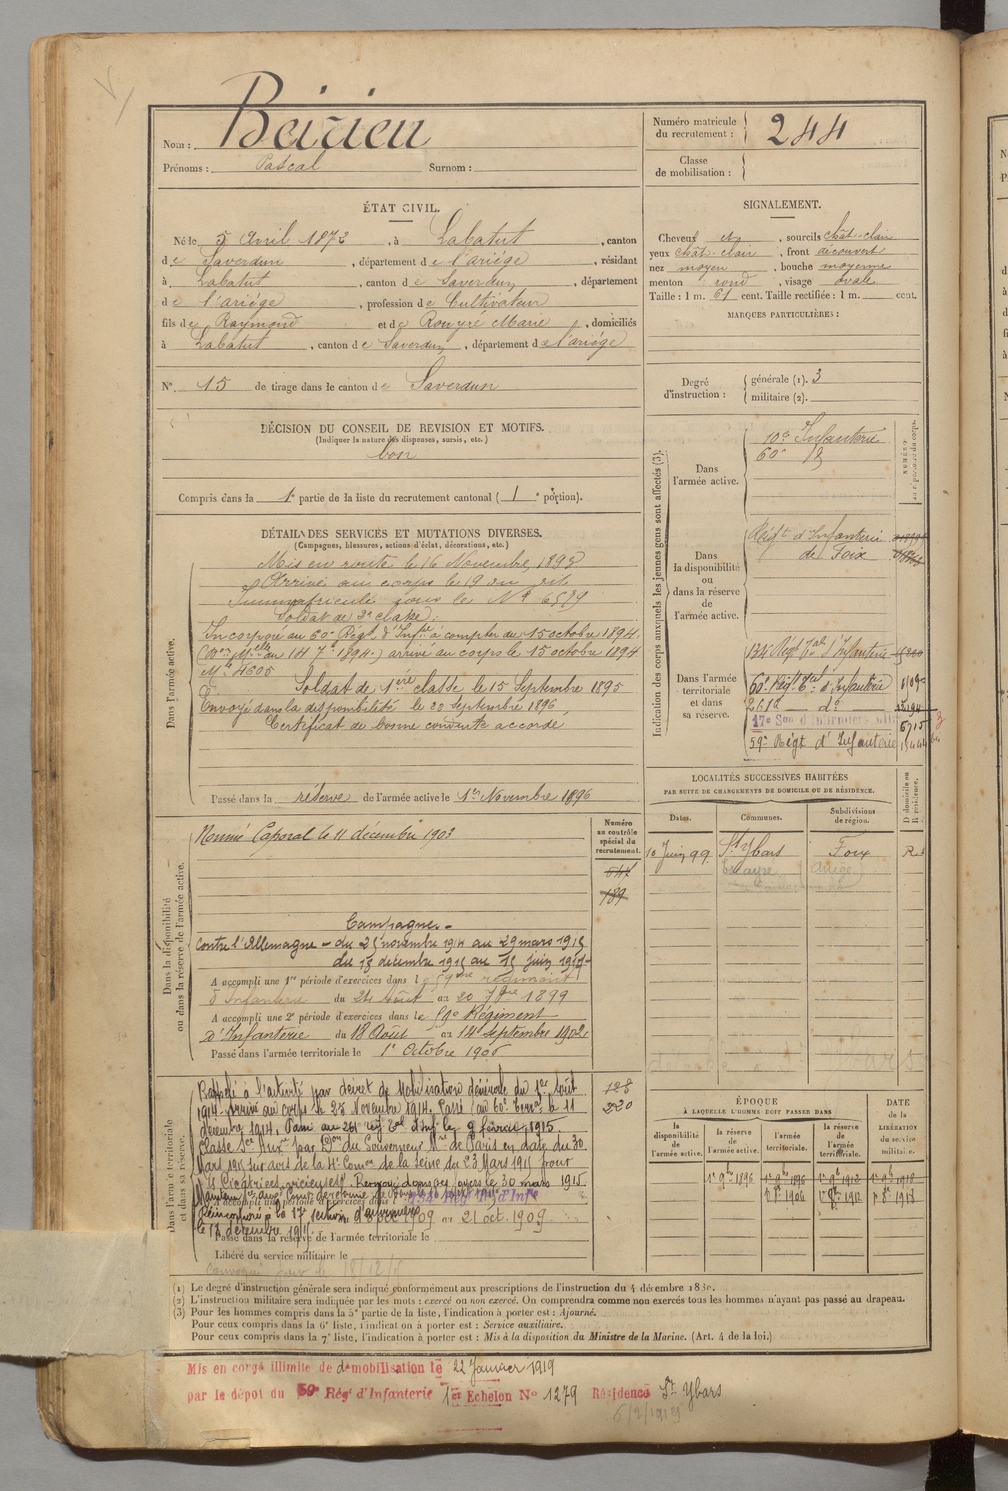 Nom : Beirieu
Prénoms : Pascal Surnom :
Numéro matricule du recrutement : 244
Classe de mobilisation :
ÉTAT CIVIL.
Né le 5 Avril 1872, à Labatut, canton
de Saverdun, département de l'ariège, résidant
à Labatut, canton de Saverdun, département
de l'ariège, profession de Cultivateur
fils de Raymond et de Rouyré Marie, domiciliés
à Labatut, canton de Saverdun, département de l'ariège
N°. 15 de tirage dans le canton de Saverdun
SIGNALEMENT.
Cheveux et, sourcils chât-clair
yeux chât-clair, front découvert
nez moyen, bouche moyenne
menton rond, visage ovale
Taille : 1 m. 61 cent. Taille rectifiée : 1 m. cent.
MARQUES PARTICULIÈRES :
Degré d'instruction : générale (1). 3
militaire (2).
DÉCISION DU CONSEIL DE REVISION ET MOTIFS.
(Indiquer la nature des dispenses, sursis, etc.)
bon
Compris dans la 1e partie de la liste du recrutement cantonal ( 1 e portion).
DÉTAIL DES SERVICES ET MUTATIONS DIVERSES.
(Campagnes, blessures, actions d'éclat, décorations, etc.)
Dans l'armée active.
Mis en route le 16 Novembre 1893
Arrivé au corps le 19 du dit
Immatriculé sous le N° 6579
Soldat de 2e classe.
Incorporé au 60e Régt. d'Infie à compter du 15 octobre 1894.
arrivé au corps le 15 octobre 1894
Mle 4605
Soldat de 1ère classe le 15 Septembre 1895
Envoyé dans la disponibilité le 22 septembre 1896
Certificat de bonne conduite accordé
Passé dans la réserve de l'armée active le 1er Novembre 1896
Indication des corps auxquels les jeunes gens sont affectés (3).
NUMÉRO
Dans l'armée active.
Infanterie
60e
Dans la disponibilité ou dans la réserve de l'armée active.
Régt d'Infanterie
de Foix
Dans l'armée territoriale et dans sa réserve.
134 Régt Tal d'Infanterie
60e Régt Teal d'Infanterie
261e do
17e Son d'Infirmiers
59e Régt d'Infanterie
LOCALITÉS SUCCESSIVES HABITÉES
PAR SUITE DE CHANGEMENTS DE DOMICILE OU DE RÉSIDENCE.
Dates. Communes. Subdivisions de région. D domicile ou R résidence.
10 Juin 99 St Ybars Foix R
Dans la disponibilité ou dans la réserve de l'armée active.
Numéro au contrôle spécial du recrutement.
Nommé Caporal le 11 décembre 1903
189
Campagnes
contre l'Allemagne - du 25 novembre 1914 au 29 mars 1915
du 13 decembre 1915 au 15 juin 1917
A accompli une 1re période d'exercices dans le 59ème régiment
d'Infanterie du 24 Août au 20 7bre 1899
A accompli une 2e période d'exercices dans le 59e Régiment
d'Infanterie du 18 Août au 14 Septembre 1902
Passé dans l'armée territoriale le 1er Octobre 1906
Dans l'armée territoriale et dans sa réserve.
Rappelé à l'activité par décret de Mobilisation Générale du 1er Août
1914 arrivé au corps le 25 Novembre 1914. Passé au 60e Terral le 11
décembre 1914. Passé au 261 reg Tal d'Inf. le 9 février 1915.
Classé Sce Auxre par Don du Gouverneur Mre de Paris en date du 30
Mars 1915 sur avis de la 4e Comon de la Seine du 23 Mars 1915 pour
Cicatrices vicieuses. Renvoyé dans ses foyers le 30 mars 1915
Réincorporé à la 17e section d'infirmiers
le 13 décembre 1915
1909 au 21 oct. 1909
Passé dans la réserve de l'armée territoriale le
Libéré du service militaire le
ÉPOQUE
À LAQUELLE L'HOMME DOIT PASSER DANS
la disponibilité de l'armée active. la réserve de l'armée active. l'armée territoriale. la réserve de l'armée territoriale.
DATE de la LIBÉRATION du service militaire.
(1) Le degré d'instruction générale sera indiqué conformément aux prescriptions de l'instruction du 4 décembre
(2) L'instruction militaire sera indiquée par les mots : exercé ou non exercé. On comprendra comme non exercés tous les hommes n'ayant pas passé au drapeau.
(3) Pour les hommes compris dans la 5e partie de la liste, l'indication à porter est : Ajourné.
Pour ceux compris dans la 6e liste, l'indication à porter est : Service auxiliaire.
Pour ceux compris dans la 7e liste, l'indication à porter est : Mis à la disposition du Ministre de la Marine. (Art. 4 de la loi.)
Mis en congé illimité de démobilisation le 22 Janvier 1919
par le dépôt du 59e Régt d'Infanterie 1er Echelon N° 1279 Résidence St Ybars
6/2/1919